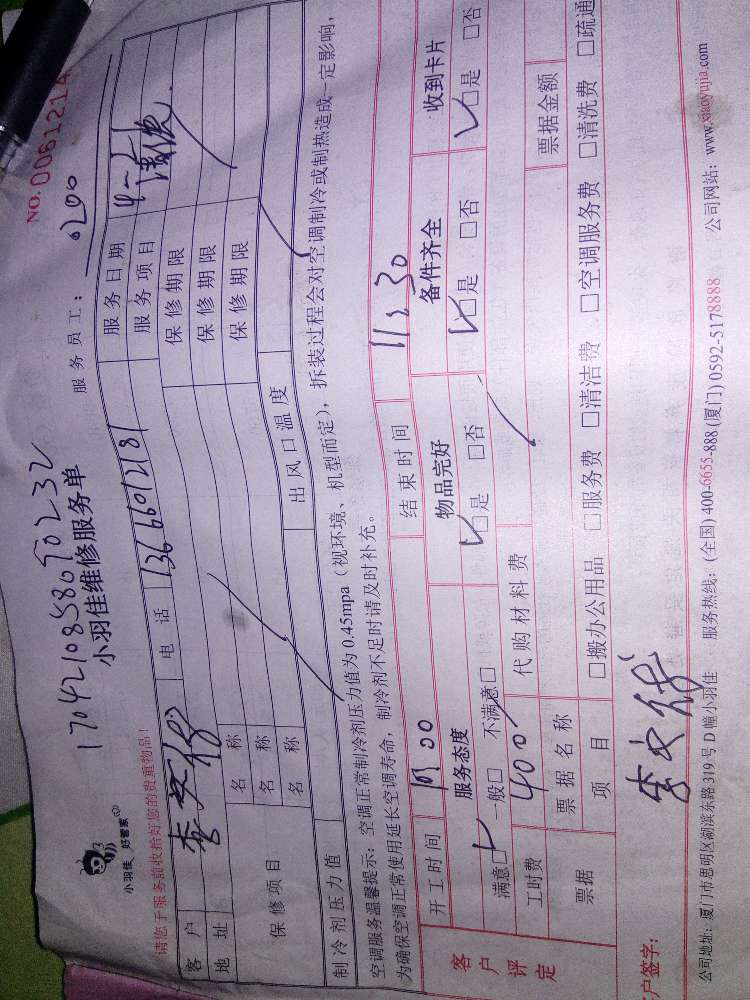 NO. 0061214
1704210858090232
小羽佳 好管家
小羽佳维修服务单
服务员工： 0290
请您于服务前收拾好您的贵重物品！
客户
电话 13666012181
服务日期
地址
服务项目 清洗
保修项目
名称
保修期限
名称
保修期限
名称
保修期限
制冷剂压力值
出风口温度
空调服务温馨提示：空调正常制冷剂压力值为0.45mpa（视环境、机型而定），拆装过程会对空调制冷或制热造成一定影响，
为确保空调正常使用延长空调寿命，制冷剂不足时请及时补充。
客户评定
开工时间
结束时间 11:30
服务态度
物品完好
备件齐全
收到卡片
满意□ 一般□ 不满意□
□是 □否
□是 □否
□是 □否
工时费 400
代购材料费
票据
票据名称
票据金额
项目
□搬办公用品 □服务费 □清洁费 □空调服务费 □清洗费 □疏通
户签字：
公司地址：厦门市思明区湖滨东路319号D幢小羽佳 服务热线：(全国) 400-6655-888 (厦门) 0592-5178888 公司网站：www.xiaoyujia.com